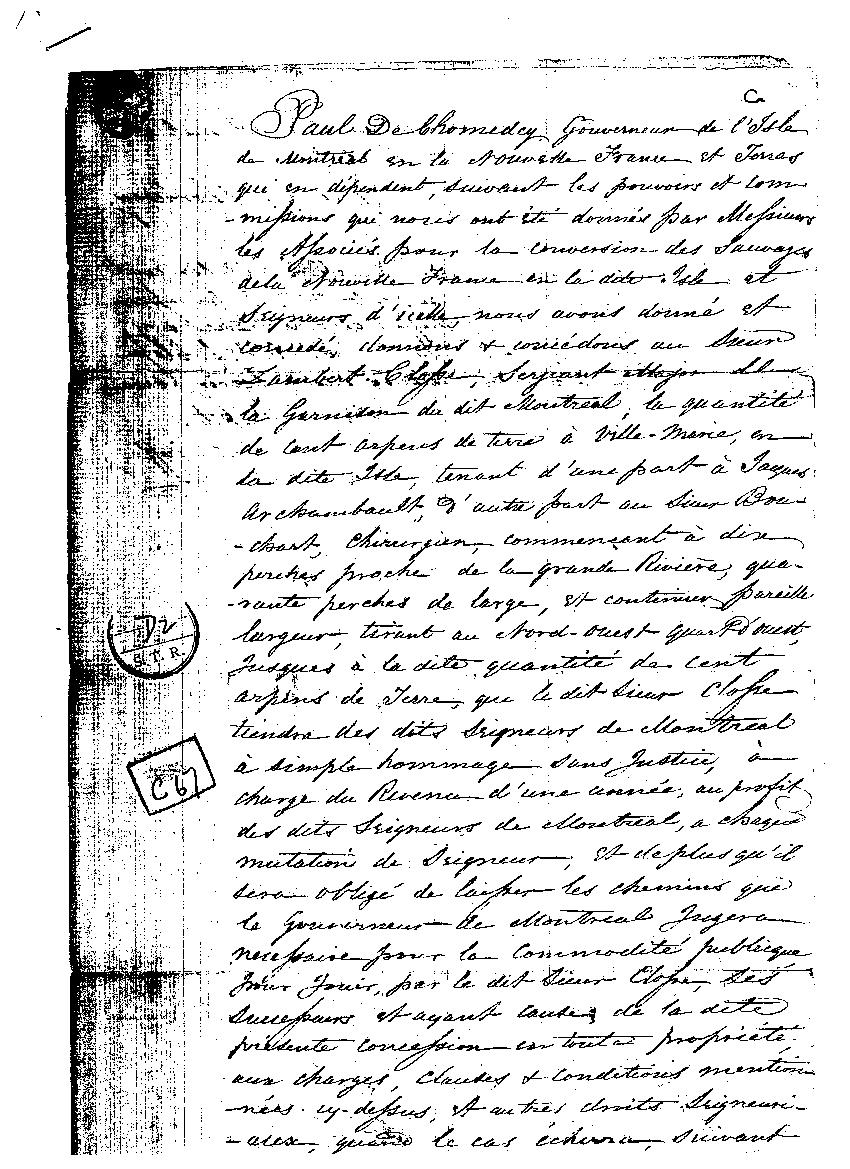 Co
Paul De Chomedey Gouverneur de l'Isle
de Montreal en la Nouvelle France et Terres
qui en dependent, suivant les pouvoirs et com
-missions qui nous ont été donnés par Messieurs
les Associés pour la conversion des Sauvages
de la Nouvelle France en la dite Isle et
Seigneurs d'icelle, nous avons donné et
concédé, donnons & concédons au Sieur
Lambert Closse, Sergeant Major de
la Garnison du dit Montreal, la quantité
de cent arpens de terre à Ville-Marie, en
la dite Isle, tenant d'une part à Jaques
Archambault, d'autre part au Sieur Bou-
-chart, Chirurgien, commencant à dix
perches proche de la grande Rivière, qua-
-rante perches de large, et continuer pareille
largeur, tirant au Nord-ouest quart D'ouest,
Jusques à la dite quantité de cent
arpens de Terre, que le dit Sieur Closse
tiendra des dits Seigneurs de Montreal
à simple hommage sans Justice, à
charge du Revenu d'une année, au profit
des dits Seigneurs de Montreal, a chaque
mutation de Seigneur, Et de plus qu'il
sera obligé de laisser les chemins que
le Gouverneur de Montreal Jugera
necessaire pour la Commodité publicque
Pour Jouir, par le dit Sieur Closse, Ses
Successeurs et ayant cause, de la dite
présente concession en toute propriété
aux charges, clauses & conditions mention
-nées cy-dessus, Et autres droits Seigneuri-
-aux, quand le cas écherra, suivant
D2
S.T.R.
C 67